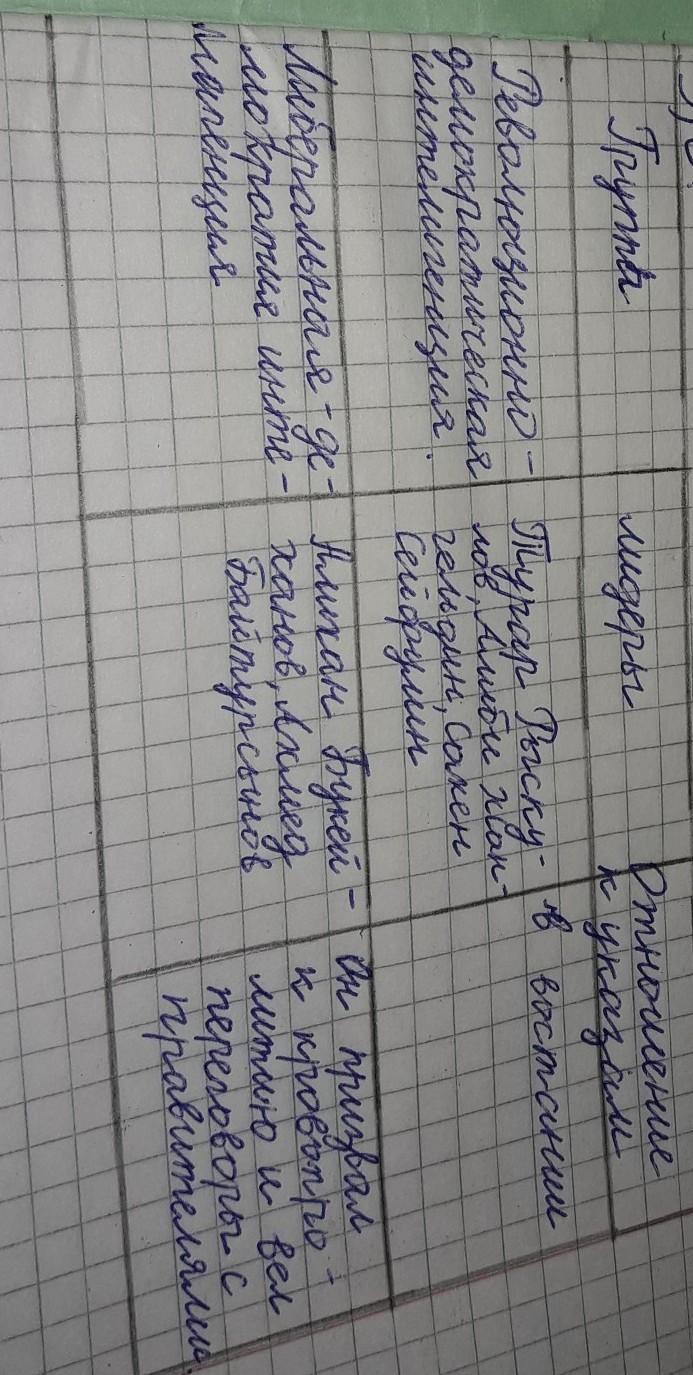 Группы
лидеры
Отношение
к указам
Революционно-
демократическая
интелигенция.
Турар Рыску-
лов, Алиби Жан-
гельдин, Сакен
Сейфулин
в востании
Либеральная-де-
мократия инте-
лигенция
Алихан Букей-
ханов, Ахмед
Байтурсынов
Он призвал
к кровопро-
литию и вел
переговоры с
правителями.